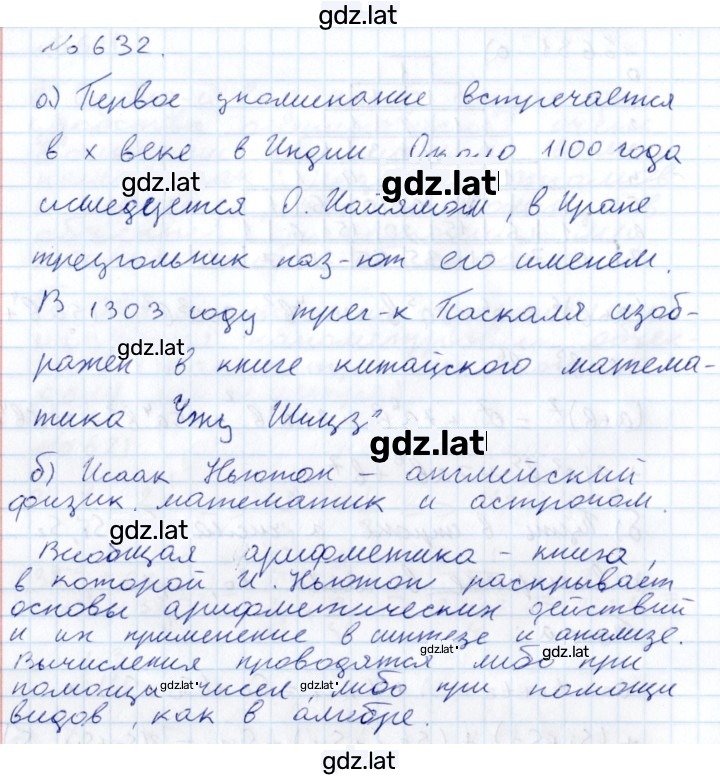 gdz.lat
№ 632.
а) Первое упоминание встречается
в X веке в Индии. Около 1100 года
gdz.lat gdz.lat
исследуется О. Хайямом, в Иране
треугольник наз-ют его именем.
В 1303 году треу-к Паскаля изоб-
gdz.lat
ражен в книге китайского матема-
тика Чжу Шицзе
gdz.lat
б) Исаак Ньютон – английский
физик, математик и астроном.
gdz.lat
Всеобщая арифметика – книга,
в которой И. Ньютон раскрывает
основы арифметических действий
и их применение в синтезе и анализе.
gdz.lat gdz.lat
Вычисления проводятся либо при
помощи чисел, либо при помощи
gdz.lat gdz.lat
видов, как в алгебре.
gdz.lat